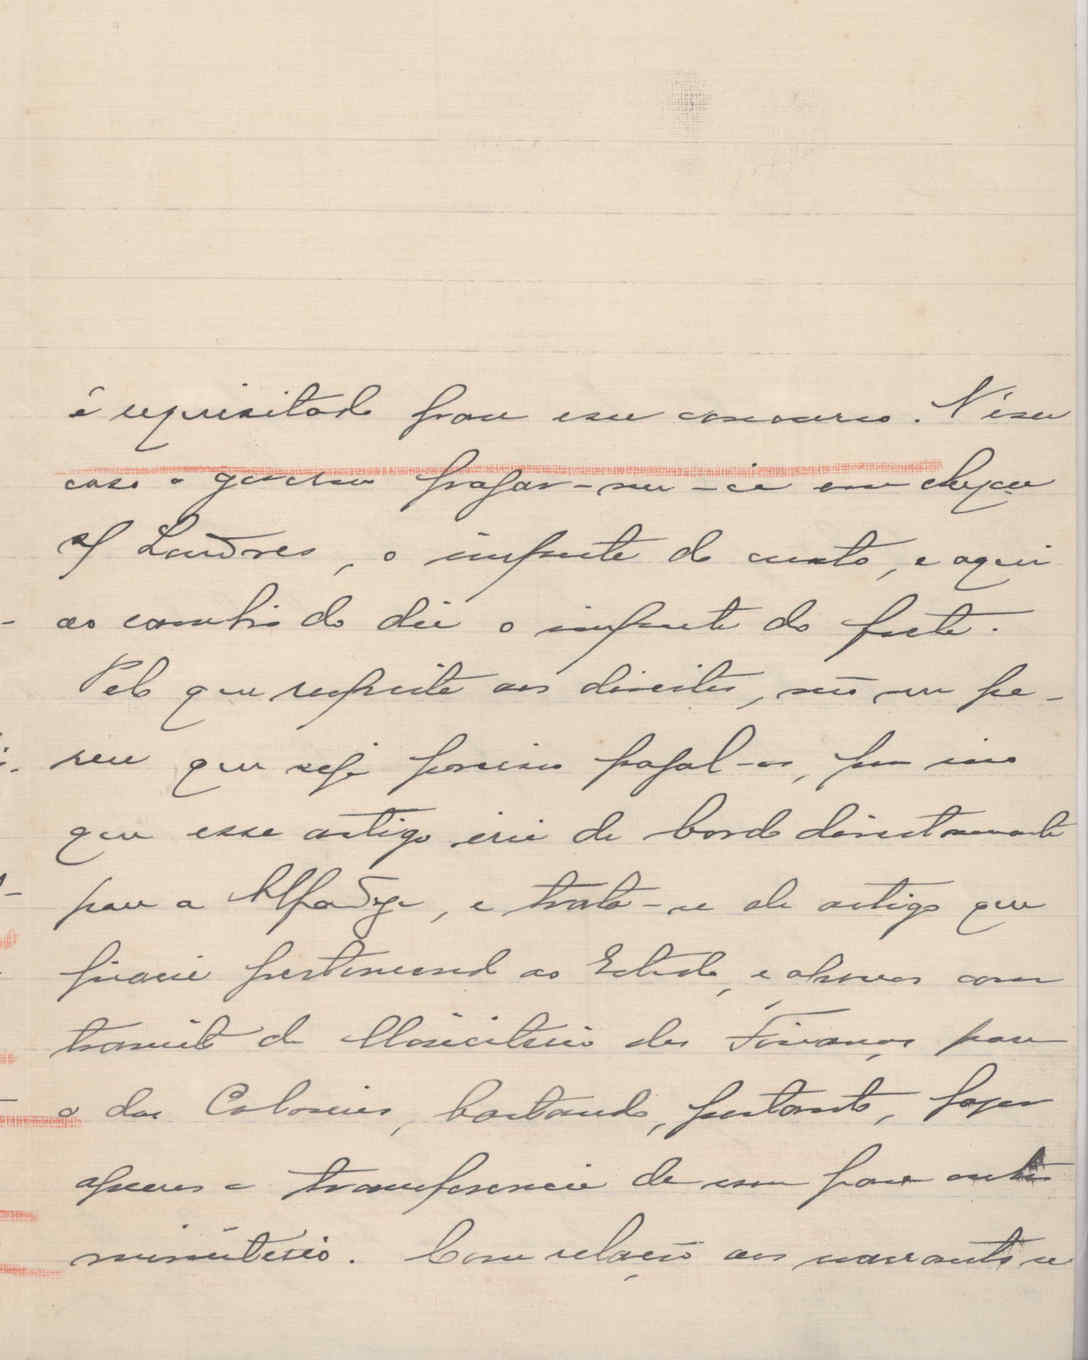 é requisitado para esse concurso. N'esse
caso o governo pagar-me-ia em cheque
s/ Londres, o importe do custo, e aqui
ao cambio do dia o importe do frete.
Pelo que respeita aos direitos, não me pa-
rece que seja preciso pagal-os, por isso
que esse artigo iria de bordo directamente
para a Alfandega, e trata-se de artigo que
ficaria pertencendo ao Estado, e apenas com
transito do Ministerio das Finanças para
o das Colonias, bastando, portanto, fazer
apenas a transferencia de um para outro
ministerio. Com relação aos warrants e